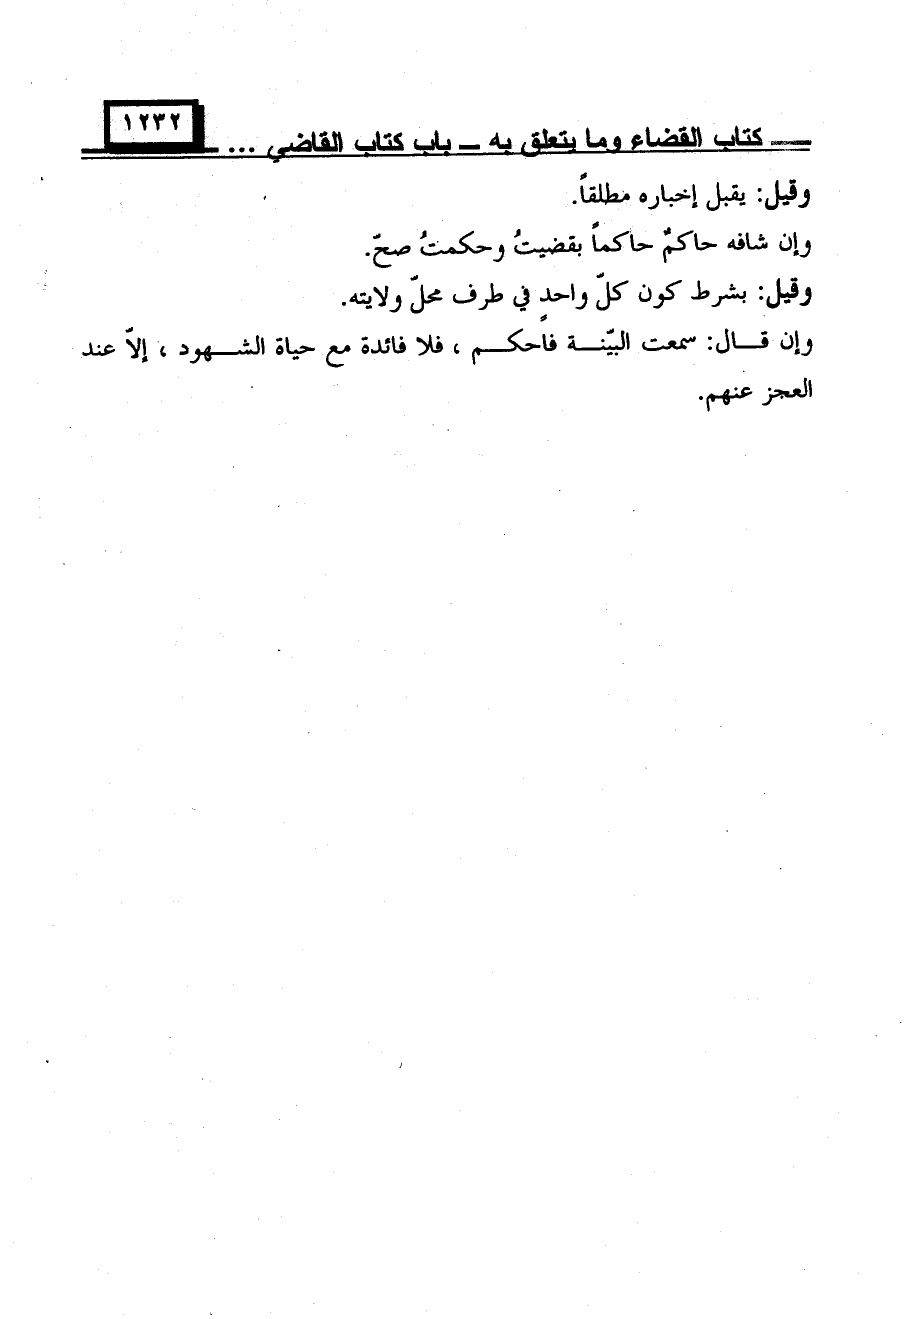 كتاب القضاء وما يتعلق به ــ باب كتاب القاضي ... ١٢٣٢
وقيل: يقبل إخباره مطلقاً.
وإن شافه حاكمٌ حاكماً بقضيتُ وحكمتُ صحّ.
وقيل: بشرط كون كلّ واحدٍ في طرف محلّ ولايته.
وإن قـــال: سمعت البيّنـــة فاحكـــم ، فلا فائدة مع حياة الشـــهود ، إلاّ عند
العجز عنهم.